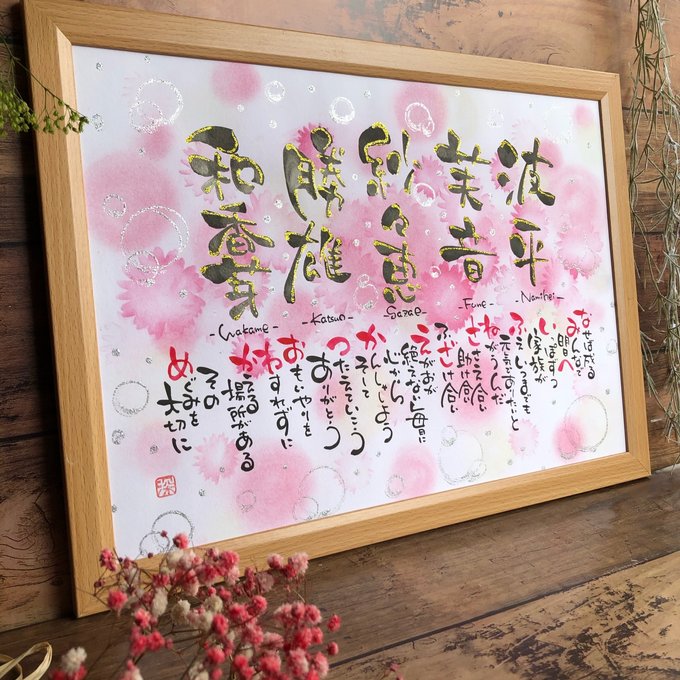 波平
芙音
紗々恵
勝雄
和香芽
-Namihei-
-Fune-
-Sazae-
-Katsuo-
-Wakame-
なせば成る
みんなで
いっぽずつ
家族が
いつまでも
元気でありたいと
ねがうんだ
ささえ合い
助け合い
ふざけ合い
えがおが
絶えない毎日に
心から
かんしゃしよう
そして
つたえていこう
ありがとう
おもいやりを
わすれずに
かえる
場所がある
その
めぐみを
大切に